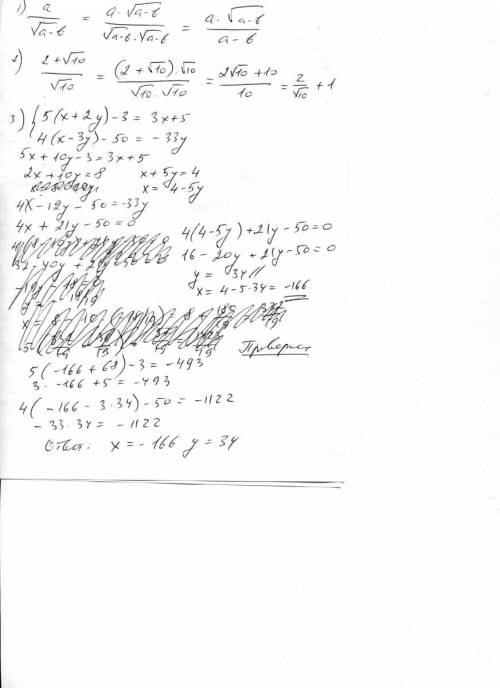 1) a/√a-b = a·√a-b/√a-b·√a-b = a·√a-b/a-b
2) 2+√10/√10 = (2+√10)·√10/√10·√10 = 2√10+10/10 = 2/√10 + 1
3) { 5(x+2y)-3 = 3x+5
4(x-3y)-50 = -33y
5x+10y-3=3x+5
2x+10y=8 x+5y=4
x= 4-5y
4x-12y-50=-33y
4x+21y-50=0
4(4-5y)+21y-50=0
16-20y+21y-50=0
y= 34
x=4-5·34=-166
Проверка
5(-166+68)-3=-493
3·-166+5=-493
4(-166-3·34)-50=-1122
-33·34=-1122
Ответ: x=-166 y=34